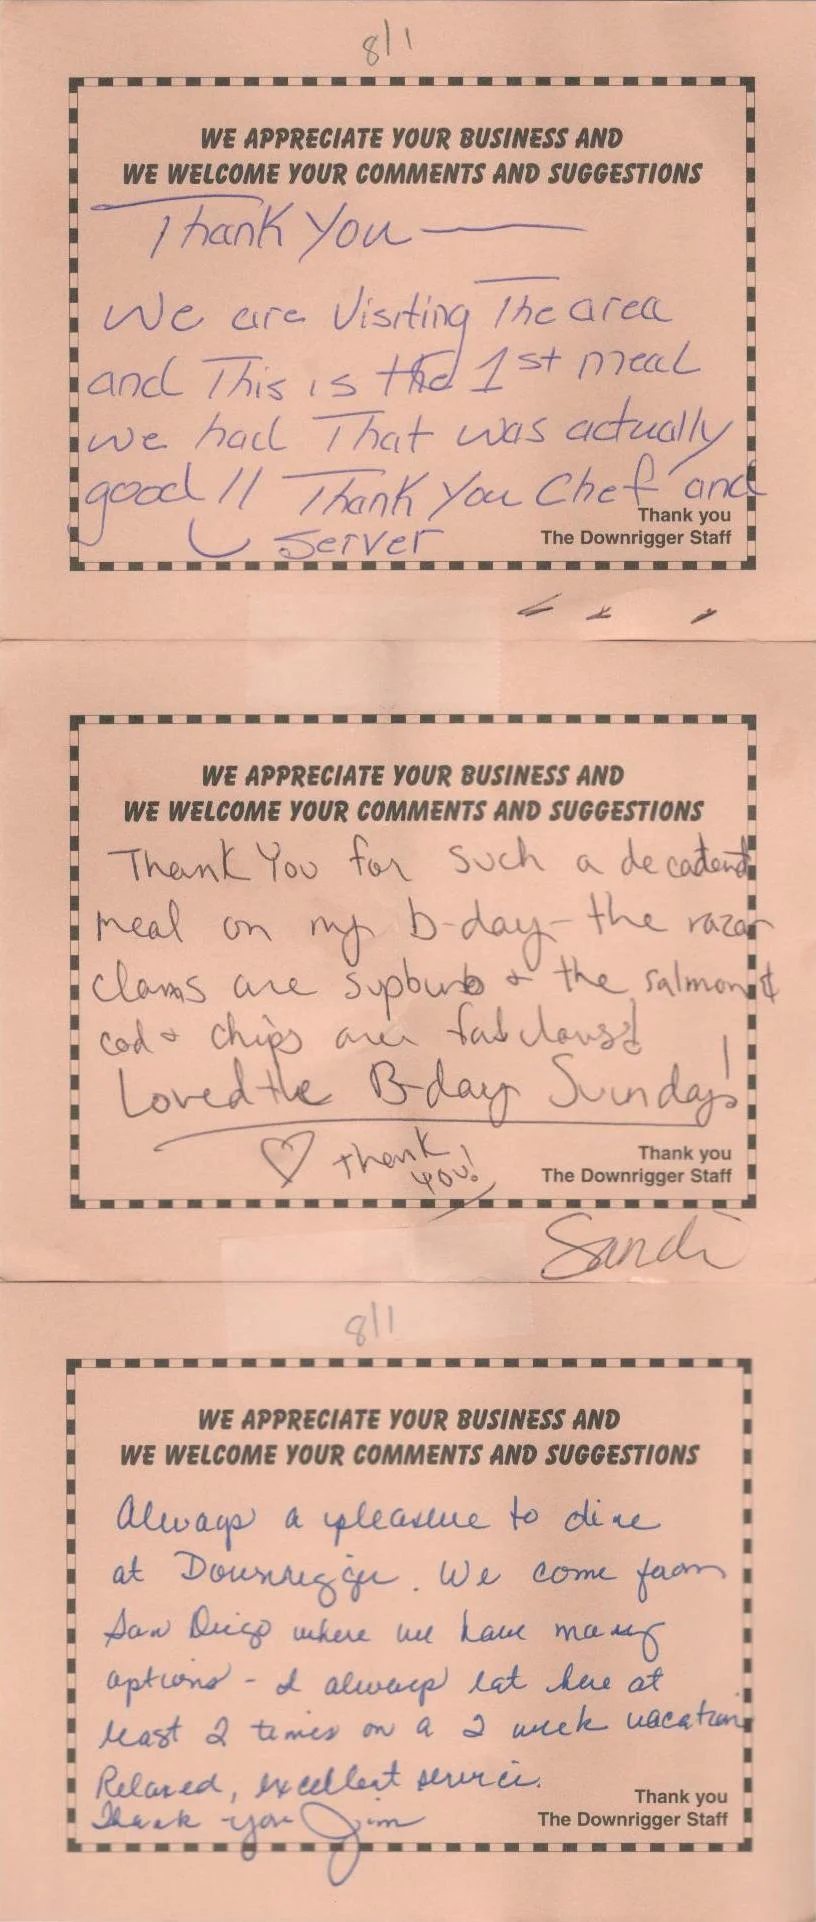 8/1
WE APPRECIATE YOUR BUSINESS AND
WE WELCOME YOUR COMMENTS AND SUGGESTIONS
Thank You —
We are Visiting The area
and This is the 1st meal
we had That was actually
good !! Thank You Chef and
Server
Thank you
The Downrigger Staff
WE APPRECIATE YOUR BUSINESS AND
WE WELCOME YOUR COMMENTS AND SUGGESTIONS
Thank You for such a decadent
meal on my b-day - the razar
clams are supburb & the salmon &
cod & chips are fabulous!
Loved the B-day Sunday!
♡ thank
you!
Thank you
The Downrigger Staff
Sandi
8/1
WE APPRECIATE YOUR BUSINESS AND
WE WELCOME YOUR COMMENTS AND SUGGESTIONS
Always a pleasure to dine
at Downrigger. We come from
San Diego where we have many
options - I always eat here at
least 2 times on a 2 week vacation
Relaxed, excellent service.
Thank you Jim
Thank you
The Downrigger Staff